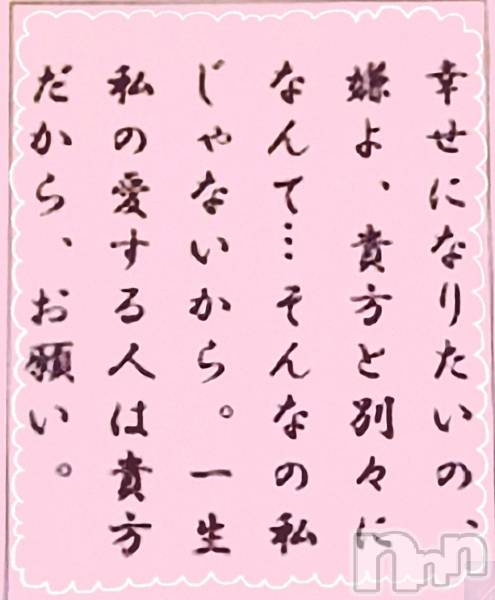 幸せになりたいの、
嫌よ、貴方と別々に
なんて…そんなの私
じゃないから。一生
私の愛する人は貴方
だから、お願い。